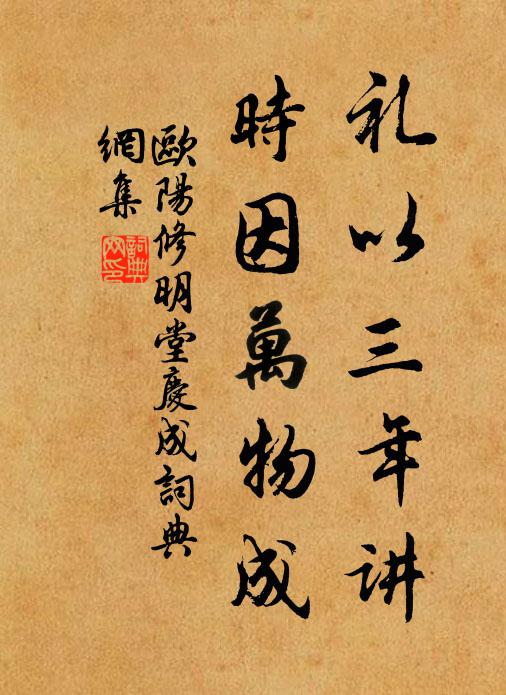 礼以三年讲
時因萬物成
歐陽修明堂慶成詞典
網集
詞典
网印